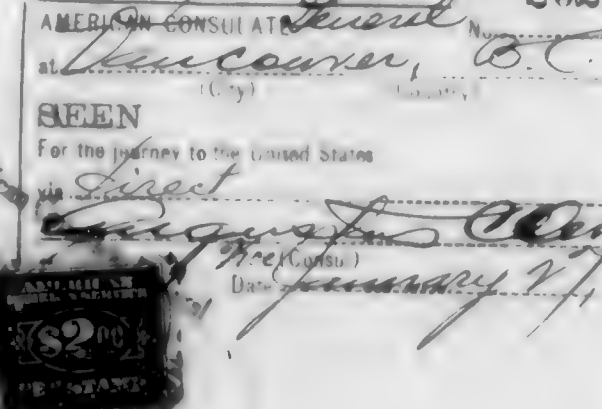 AMERICAN CONSULATE General No.
at Vancouver, B.C.
(City) (Country)
SEEN
For the journey to the United States
via Direct
Vice (Consul)
Date January 27,
AMERICAN
$2.00
FEE STAMP